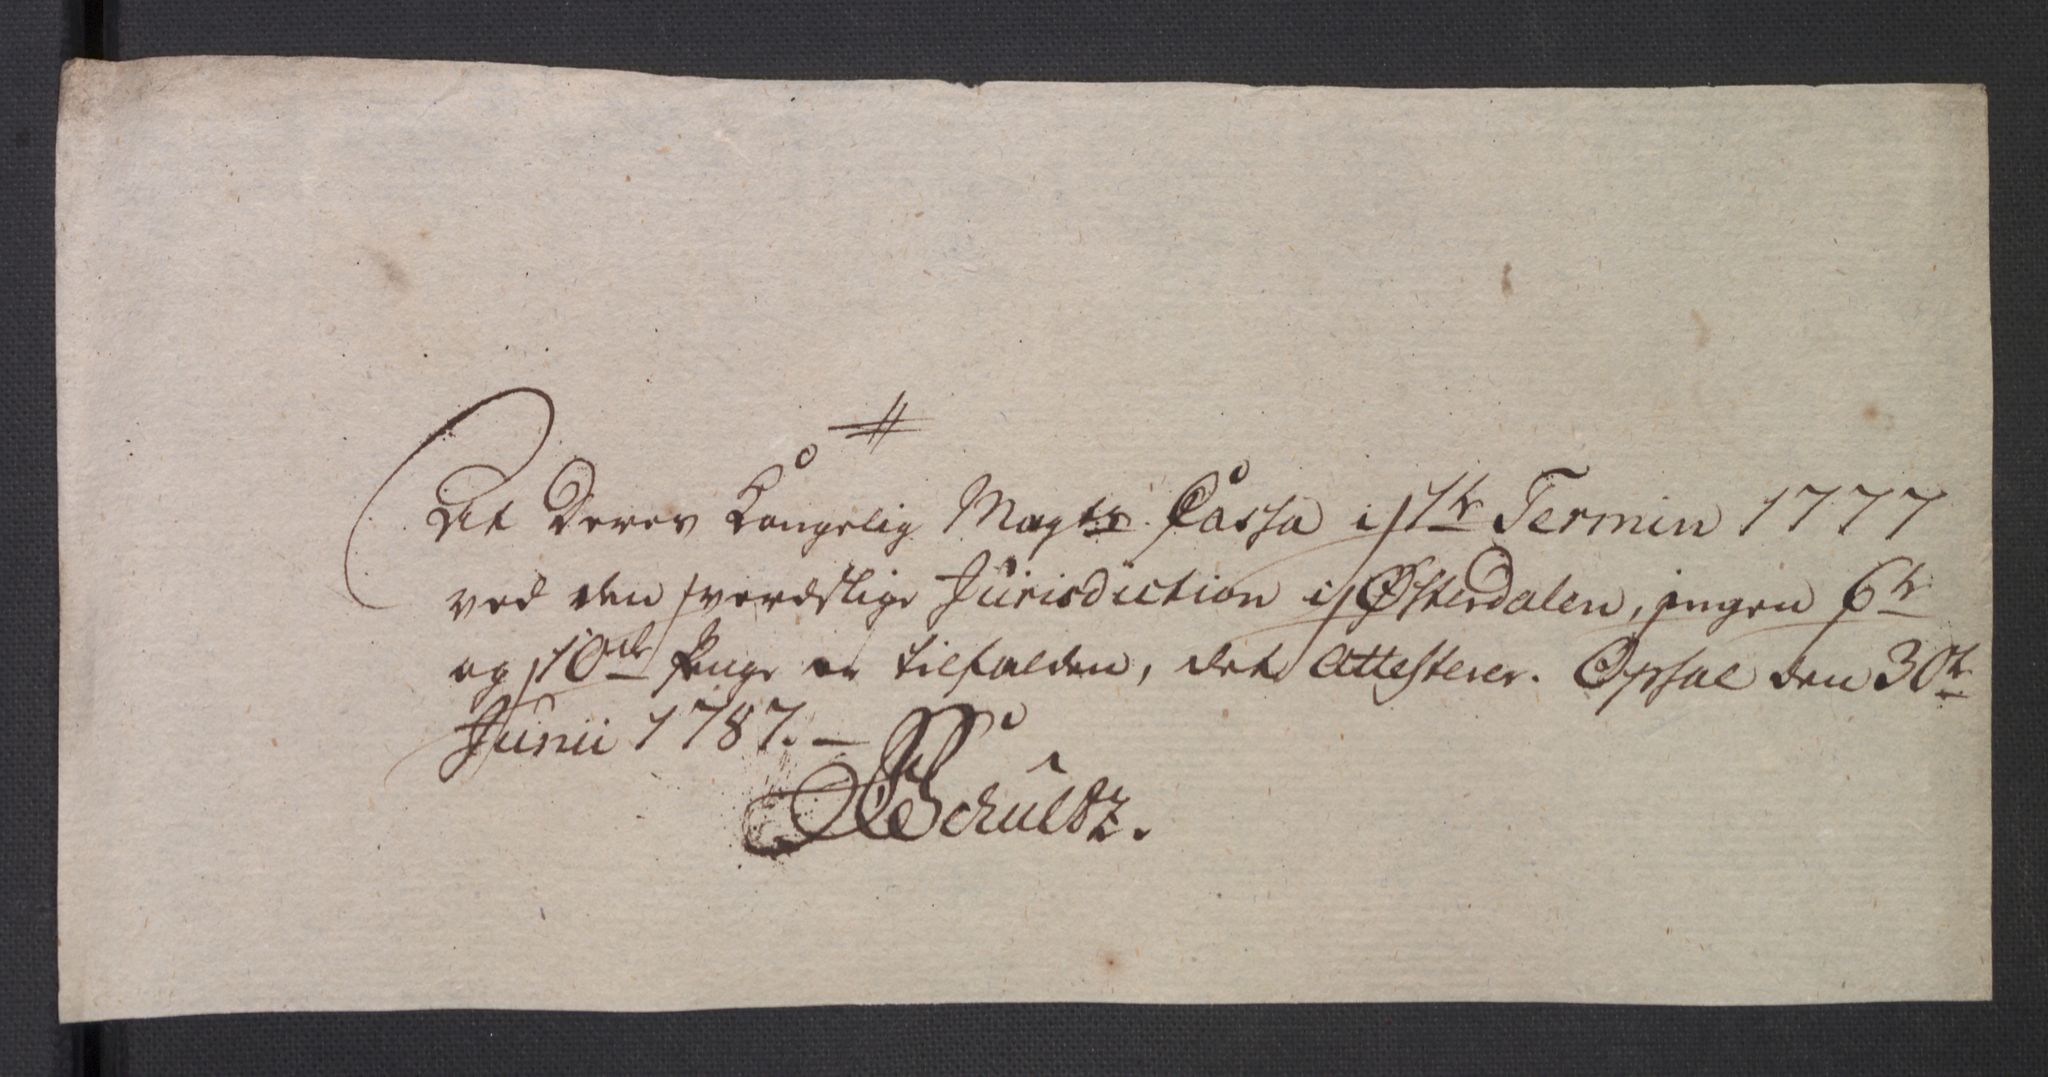 #
At Deres Kongelig Mayts. Cassa i 1te Termin 1777
ved den verdslige Jurisdiction i Østerdalen, ingen 6te
og 10de Penge er tilfalden, det Attesterer. Opsal den 30te
Junii 1787. —
Schultz.